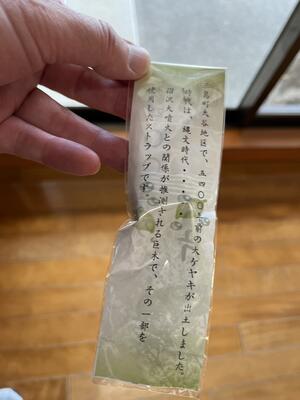 三島町大谷地区で、五四〇〇年前の大ケヤキが出土しました。
縄文時代・・・・・
沼沢大噴火との関係が推測される巨木で、その一部を
使用したストラップです。